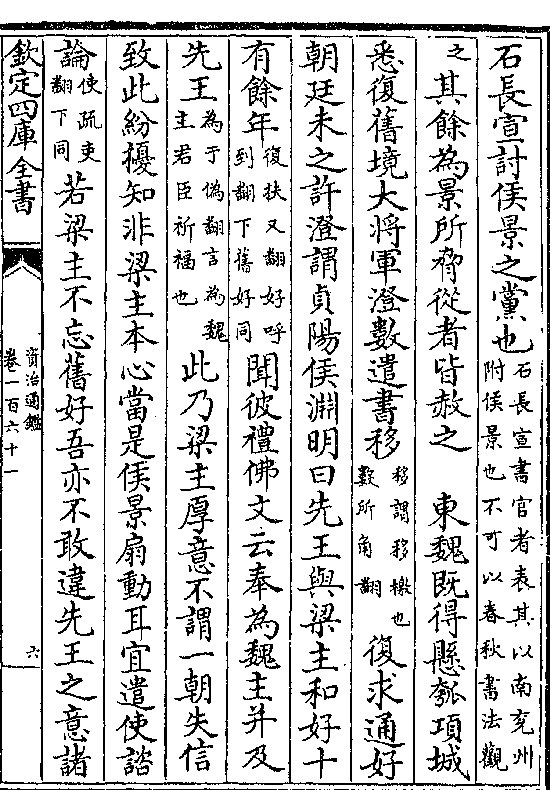 石長宣討侯景之黨也石長宣書官者表其以南兖州附侯景也不可以春秋書法觀
之其餘為景所脅從者皆赦之　東魏既得懸瓠項城
悉復舊境大將軍澄數遣書移移謂移檄也數所角翻復求通好
朝廷未之許澄謂貞陽侯淵明曰先王與梁主和好十
有餘年復扶又翻好呼到翻下舊好同聞彼禮佛文云奉為魏主并及
先王為于偽翻言為魏主君臣祈福也此乃梁主厚意不謂一朝失信
致此紛擾知非梁主本心當是侯景扇動耳宜遣使諮
論使疏吏翻下同若梁主不忘舊好吾亦不敢違先王之意諸
欽定四庫全書
資治通鑑
卷一百六十一
六